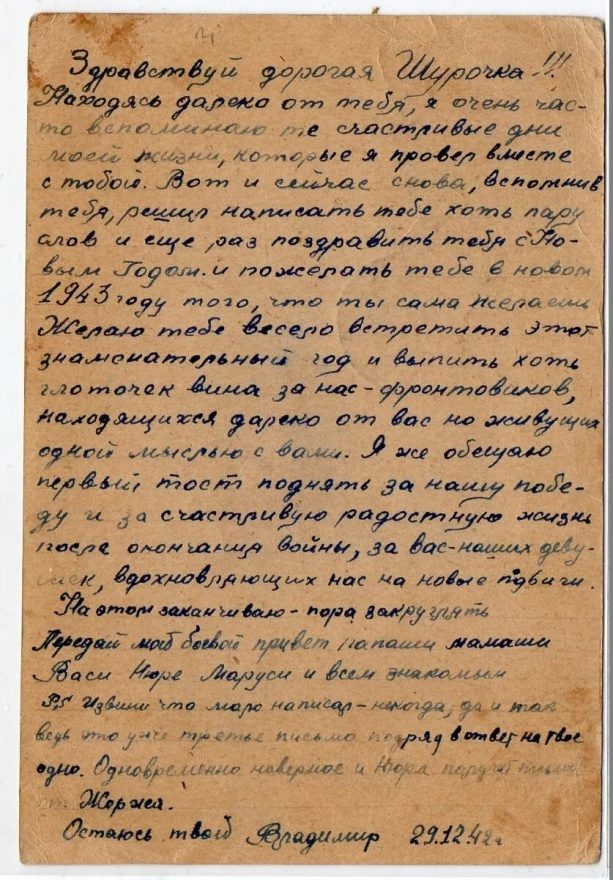 Здравствуй дорогая Шурочка!!!
Находясь далеко от тебя, я очень час-
то вспоминаю те счастливые дни
моей жизни, которые я провел вместе
с тобой. Вот и сейчас снова, вспомнив
тебя, решил написать тебе хоть пару
слов и еще раз поздравить тебя с Но-
вым Годом. и пожелать тебе в новом
1943 году того, что ты сама желаешь
Желаю тебе весело встретить этот
знаменательный год и выпить хоть
глоточек вина за нас - фронтовиков,
находящихся далеко от вас но живущих
одной мыслью с вами. Я же обещаю
первый тост поднять за нашу побе-
ду и за счастливую радостную жизнь
после окончания войны, за вас-наших деву-
шек, вдохновляющих нас на новые подвиги.
На этом заканчиваю - пора закруглять
Передай мой боевой привет папаши мамаши
Васи Нюре Маруси и всем знакомым
P.S Извини что мало написал - некогда, да и так
ведь это уже третье письмо подряд в ответ на твое
одно. Одновременно наверное и Нюра получит
от Жоржа.
Остаюсь твой Владимир 29.12.42г